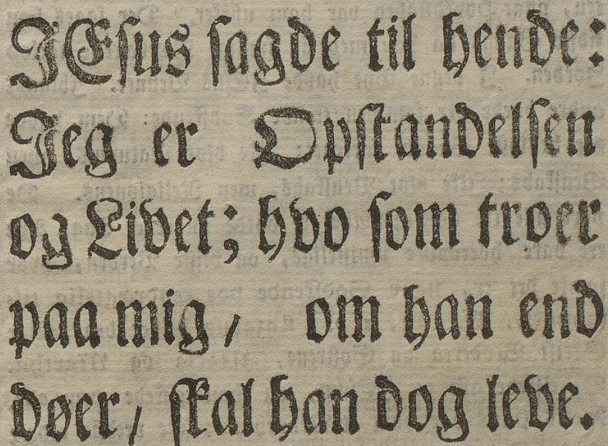 JEsus sagde til hende:
Jeg er Opstandelsen
og Livet; hvo som troer
paa mig, om han end
døer, skal han dog leve.